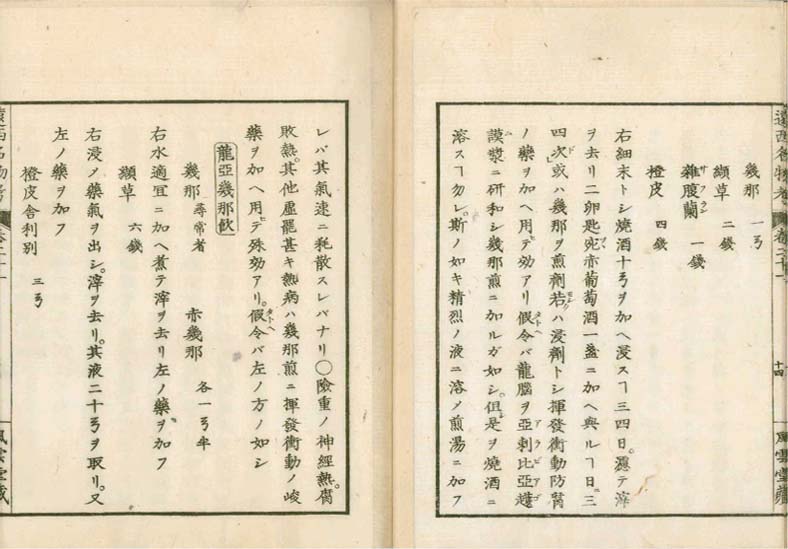 幾那 一𠔏
纈草 二錢
サフラン
雜腹蘭 一錢
橙皮 四錢
右細末トシ燒酒十𠔏ヲ加ヘ浸スヿ三四日。濾テ滓
ヲ去リ二卵匙
赤葡萄酒一盞ニ加ヘ與ルヿ日ニ三
四次或ハ幾那ヲ煎劑若ハ浸劑トシ揮發衝動防腐
ノ藥ヲ加ヘ用テ効アリ假令バ龍腦ヲ亞剌比亞
謨漿ニ研和シ幾那煎ニ加ルガ如シ。但是ヲ燒酒ニ
溶スヿ勿レ。斯ノ如キ精烈ノ液ニ溶メ煎湯ニ加フ
遠西名物考 卷二十一
十四
風雲堂藏
レバ其氣速ニ耗散スレバナリ〇險重ノ神經熱。腐
敗熱。其他虛罷甚キ熱病ハ幾那煎ニ揮發衝動ノ峻
藥ヲ加ヘ用テ殊効アリ。假令バ左ノ方ノ如シ
龍亞幾那飲
幾那 尋常者 赤幾那 各一𠔏半
右水適宜ニ加ヘ煮テ滓ヲ去リ左ノ藥ヲ加フ
纈草 六錢
右浸メ藥氣ヲ出シ。滓ヲ去リ。其液二十𠔏ヲ取リ。又
左ノ藥ヲ加フ
橙皮舎利別 三𠔏